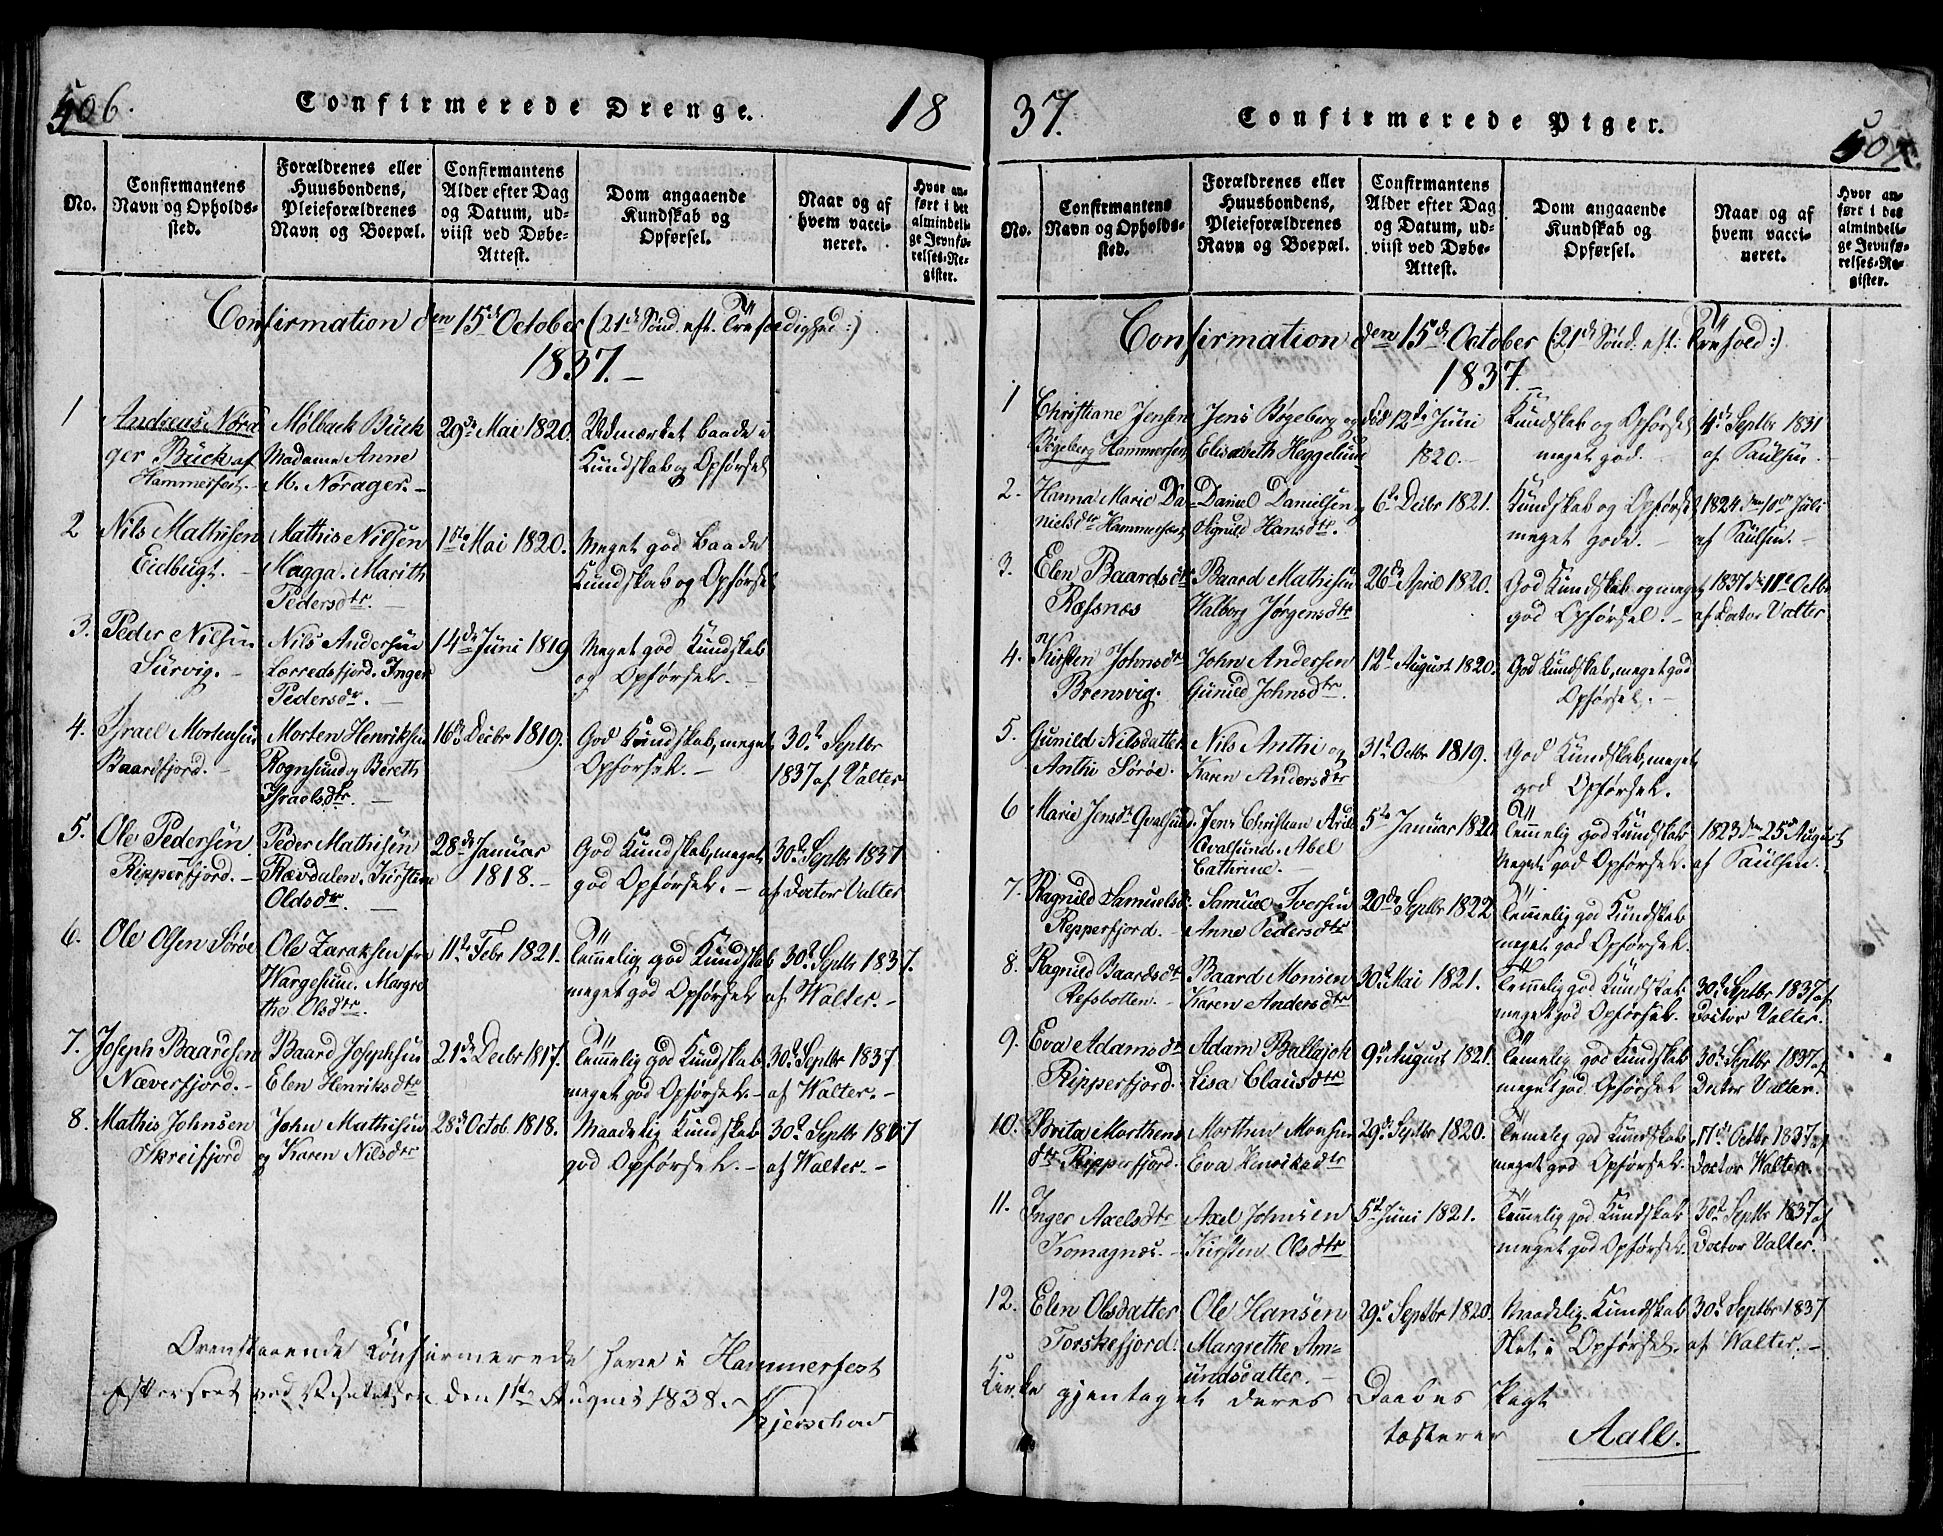 506.
Confirmerede Drenge.
18
No.
Confirmantens Navn og Opholds-sted.
Forældrenes eller Huusbondens, Pleieforældrenes Navn og Boepæl.
Confirmantens Alder efter Dag og Datum, ud-viist ved Døbe-Attest.
Dom angaaende Kundskab og Opførsel.
Naar og af hvem vacci-neret.
Hvor an-ført i det almindeli-ge Jevnfø-relses-Re-gister.
Confirmation den 15de October (21de Sønd. eft. Trefoldighed:)
1837.
1 Andreas Nøra- Mølbach Buck 29de Mai 1820. Udmærket baade i
ger Buck af Madame Anne Kundskab og Opførsel
Hammerfest. M. Nørager.
2 Nils Mathisen Mathis Nilsen 1ste Mai 1820. Meget god baade
Eidbugt. Magga Marith Kundskab og Opførsel
Pedersdtr.
3. Peder Nilsen Nils Andersen 14de Juni 1819 Meget god Kundskab
Survig. Lorredsfjord. Inger og Opførsel.
Pedersdr.
4. Israel Mortensen Morten Henriksen 16de Decbr 1819. God Kundskab, meget 30te Septbr
Baardfjord. Rognsund og Bereth Opførsel. 1837 af Valter
Israelsdtr.
5. Ole Pedersen Peder Mathisen 28de Januar God Kundskab, meget 30te Septbr 1837
Ripperfjord. Rævdalen. Kirstine 1818. god Opførsel. af Doctor Valter
Oldsdtr.
6. Ole Olsen Sørøe Ole Zaraksen fra 11te Febr 1821. Temmelig god Kundskab 30te Septbr 1837.
Wargesund. Margre- meget god Opførsel af Walter.
the Olsdtr.
7. Joseph Baardsen Baard Josephsen 21de Decbr 1817. Temmelig god Kundskab 30te Septbr 1837
Næverfjord. Elen Henriksdtr meget god Opførsel. af Walter.
8. Mathis Johnsen John Mathisen 28de Octob. 1818. Maadelig Kundskab 30te Septbr 1837
Skreifjord og Karen Nilsdtr god Opførsel. af Walter.
Ovenstaaende Konfirmerede have i Hammerfest
ved Visitatsen den 1ste August 1838.
Kjerschow
37.
Confirmerede Piger.
No.
Confirmantens Navn og Opholds-sted.
Forældrenes eller Huusbondens, Pleieforældrenes Navn og Boepæl.
Confirmantens Alder efter Dag og Datum, ud-viist ved Døbe-Attest.
Dom angaaende Kundskab og Opførsel.
Naar og af hvem vacci-neret.
Hvor an-ført i det almindeli-ge Jevnfø-relses-Re-gister.
Confirmation den 15de October (21de Sønd. eft: Trefold:)
1837.
1 Christiane Jensen Jens Bøgeberg og fød 12te Juni Kundskab og Opførsel 4de Septbr 1831
Bøgeberg Hammerfest Elisabeth Heggelund 1820. meget god. af Paulsen.
2. Hanna Marie Da- Daniel Danielsen og 6te Decbr 1821. Kundskab og Opførsel 1824 den 10de Juli
nielsdtr Hammerfest Sigrild Hansdtr. meget gode. af Paulsen.
3. Elen Baardsdtr Baard Mathisen 26de April 1820. God Kundskab og meget 1837 den 11te Octbr
Ræfsnæs Walborg Jørgensdtr god Opførsel. af Doctor Valter
4. Kirsten Johnsdtr John Andersen 12te August 1820. God Kundskab, meget god
Brensvig. Gunild Johnsdtr. Opførsel.
5. Gunild Nilsdatter Nils Anthi og 31te Octbr 1819. God Kundskab, meget
Anthi Sørøe. Karen Andersdtr god Opførsel.
6 Marie Jensdtr Qvalsund. Jens Christian 5te Januar 1820 Temmelig god Kundskab 1823 den 25de August
Qvalsund. Abel Meget god Opførsel. af Paulsen.
Cathrine.
7. Ragnild Samuelsdr. Samuel Iversen 20de Septbr 1822 Temmelig god Kundskab
Repperfjord. Anne Pedersdtr meget god Opførsel.
8. Ragnild Baardsdtr Baard Monsen 30te Mai 1821. Temmelig god Kundskab 30te Septbr 1837 af
Refsbotten. Karen Andersdtr meget god Opførsel. Doctor Valter.
9. Eva Adamsdtr Adam Ballajok 9de August 1821. Temelig god Kundskab 30te Septbr 1837 af
Ripperfjord. Lisa Clausdtr meget god Opførsel Docter Valter.
10. Brita Morthens- Morthen Monsen 29de Septbr 1820. Temelig god Kundskab 17de Octbr 1837 af
dtr Ripperfjord. Eva Henriksdtr meget god Opførsel. Doctor Walter.
11. Inger Axelsdtr Axel Johnsen 5te Juni 1821. Temmelig god Kundskab 30te Septbr 1837 af
Komagnes. Kirsten Olsdtr meget god Opførsel. Doctor Valter.
12. Elen Olsdatter Ole Hansen 29de Septbr 1820. Maadelig Kundskab 30te Septbr 1837
Torskefjord. Margrethe Am- Slet i Opførsel. af Walter.
undsdatter.
Kirke gjentaget deres Daabes Pagt
testerer Aall.